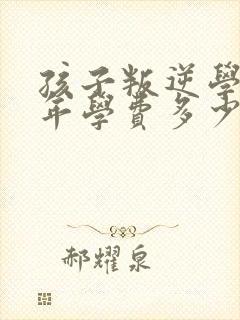 孩子叛逆學
年學費多少
郝耀泉